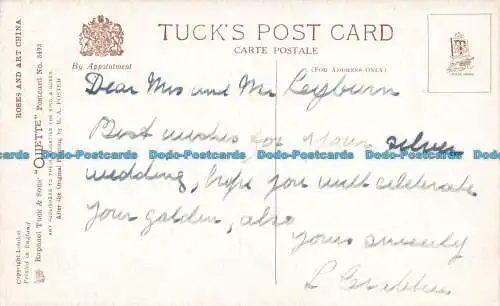 TUCK'S POST CARD
CARTE POSTALE
By Appointment
(FOR ADDRESS ONLY)
ROSES AND ART CHINA
Raphael Tuck & Sons' "OILETTE" Postcard No. 8492
ART PUBLISHERS TO THEIR MAJESTIES THE KING & QUEEN.
After the Original Painting by M. A. FOSTER
Copyright London
Printed in England
Dear Mrs and Mr Leyburn
Best wishes for your silver
wedding, hope you will celebrate
your golden, also
yours sincerely
L
Dodo-Postcards Dodo-Postcards Dodo-Postcards Dodo-Postcards
Dodo-Postcards Dodo-Postcards Dodo-Postcards Dodo-Postcards